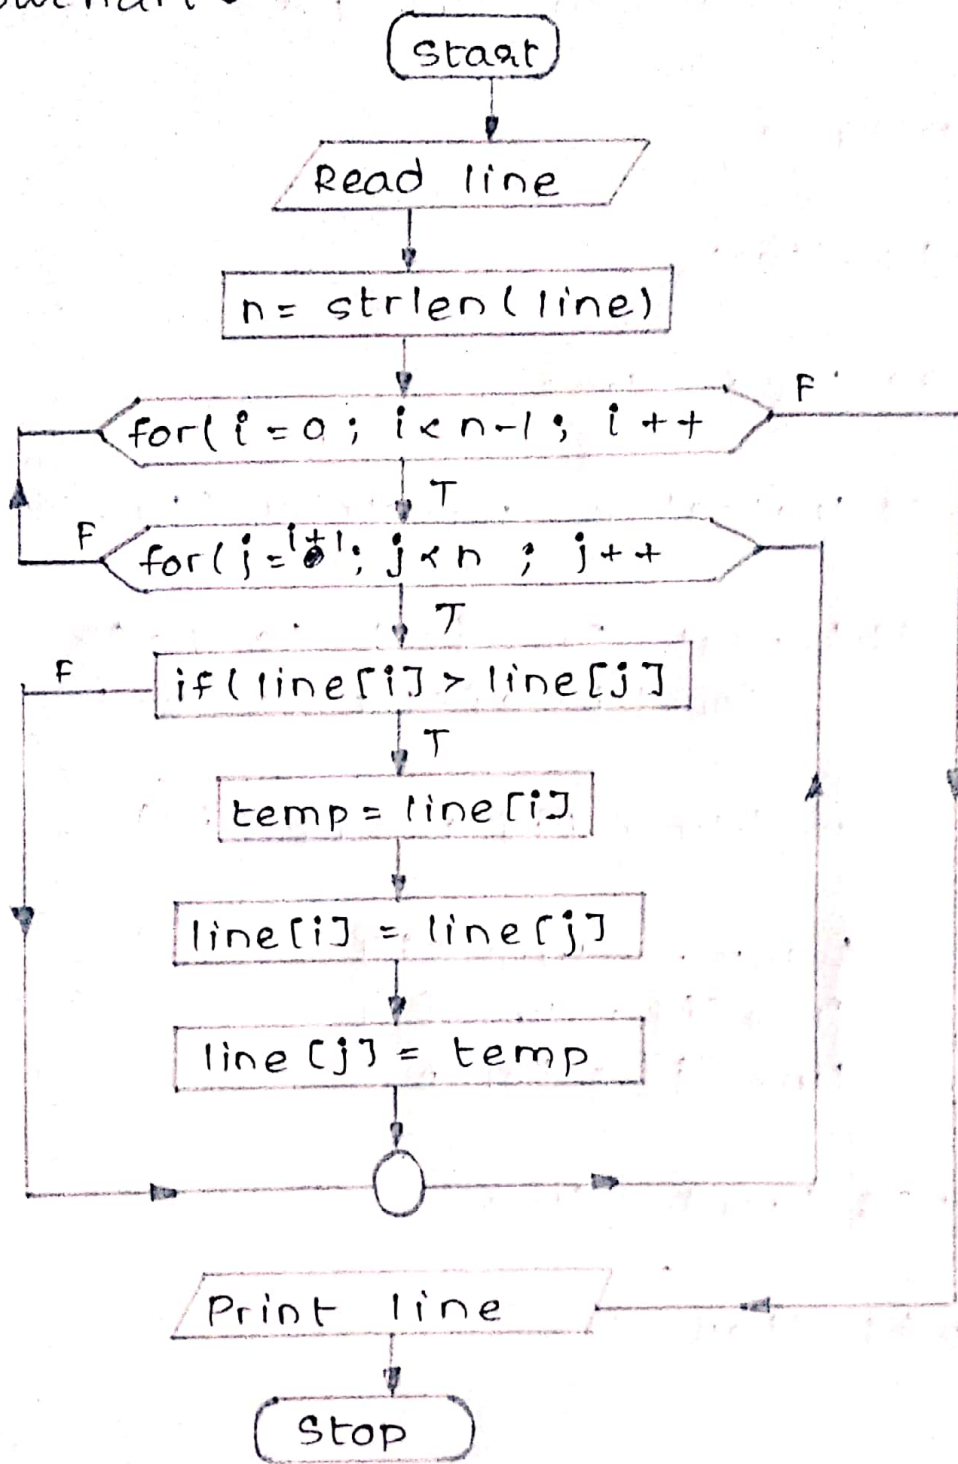 Start
Read line
n= strlen(line)
for(i=0; i<n-1; i++
F
T
F
for(j=i+1; j<n ; j++
T
F
if(line[i] > line[j]
T
temp = line[i]
line[i] = line[j]
line[j] = temp
Print line
Stop